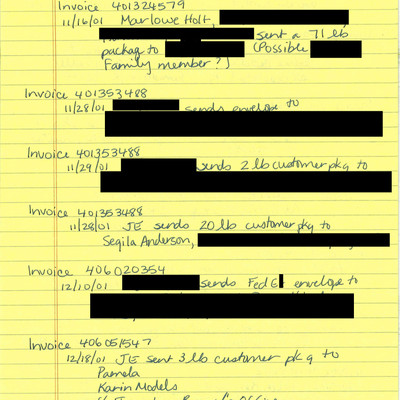 Invoice 401324579
11/16/01 Marlowe Holt,
sent a 71 lb
package to (Possible
Family member?)
Invoice 401353488
11/28/01 sends envelope to
Invoice 401353488
11/29/01 sends 2 lb customer pkg to
Invoice 401353488
11/28/01 JE sends 20 lb customer pkg to
Segila Anderson,
Invoice 406020354
12/10/01 sends Fed E envelope to
Invoice 406051547
12/18/01 JE sent 3 lb customer pkg to
Pamela
Karin Models